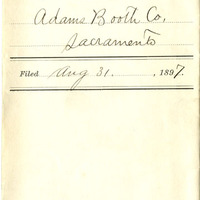 Adams Booth Co,
Sacramento
Filed Aug 31. , 1897.